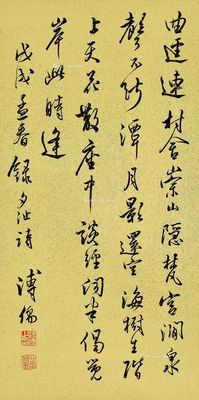 曲逕連村舍崇山隱梵宮澗泉
聲不斷潭月影還空海樹生階
上天花散座中談經聞半偈覺
岸此時逢
戊戌孟春錄夕詩 溥儒